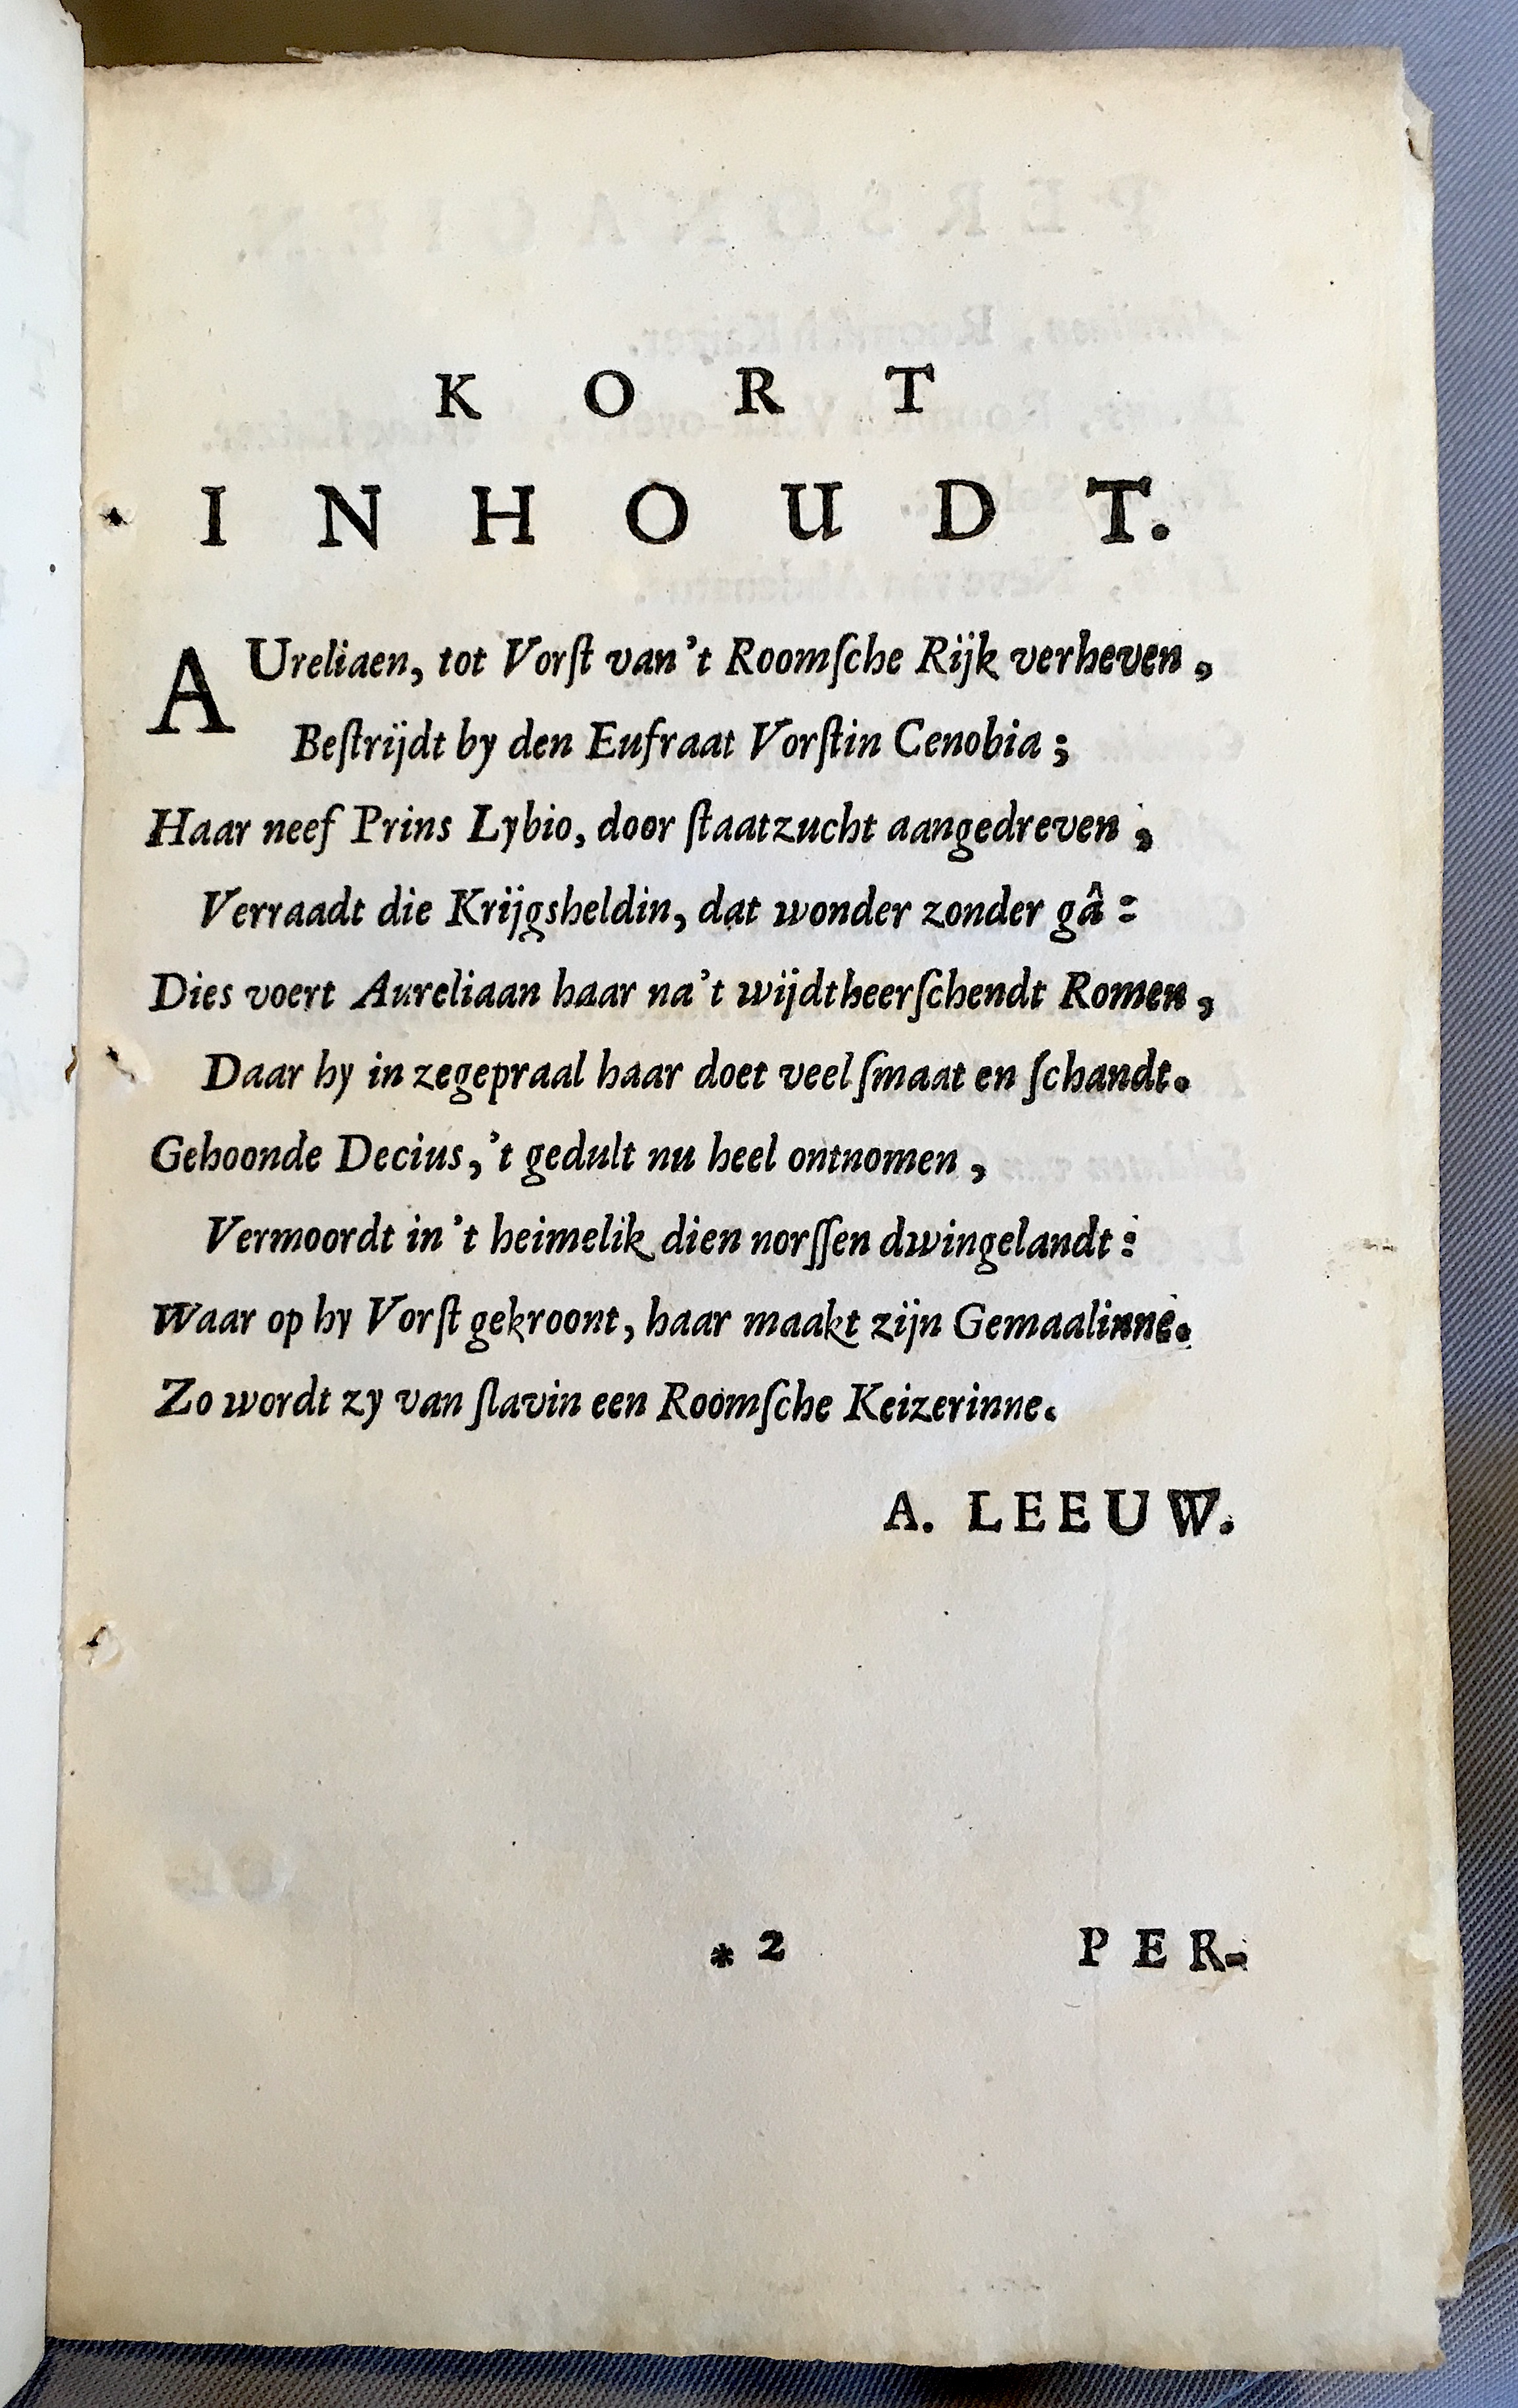 KORT
INHOUDT.
AUreliaen, tot Vorſt van't Roomſche Rijk verheven,
Beſtrijdt by den Eufraat Vorſtin Cenobia;
Haar neef Prins Lybio, door ſtaatzucht aangedreven,
Verraadt die Krijgsheldin, dat wonder zonder gâ:
Dies voert Aureliaan haar na't wijdtheerſchendt Romen,
Daar hy in zegepraal haar doet veel ſmaat en ſchandt.
Gehoonde Decius, 't gedult nu heel ontnomen,
Vermoordt in't heimelik dien norſſen dwingelandt:
Waar op hy Vorſt gekroont, haar maakt zijn Gemaalinne.
Zo wordt zy van ſlavin een Roomſche Keizerinne.
A. LEEUW.
* 2 PER-